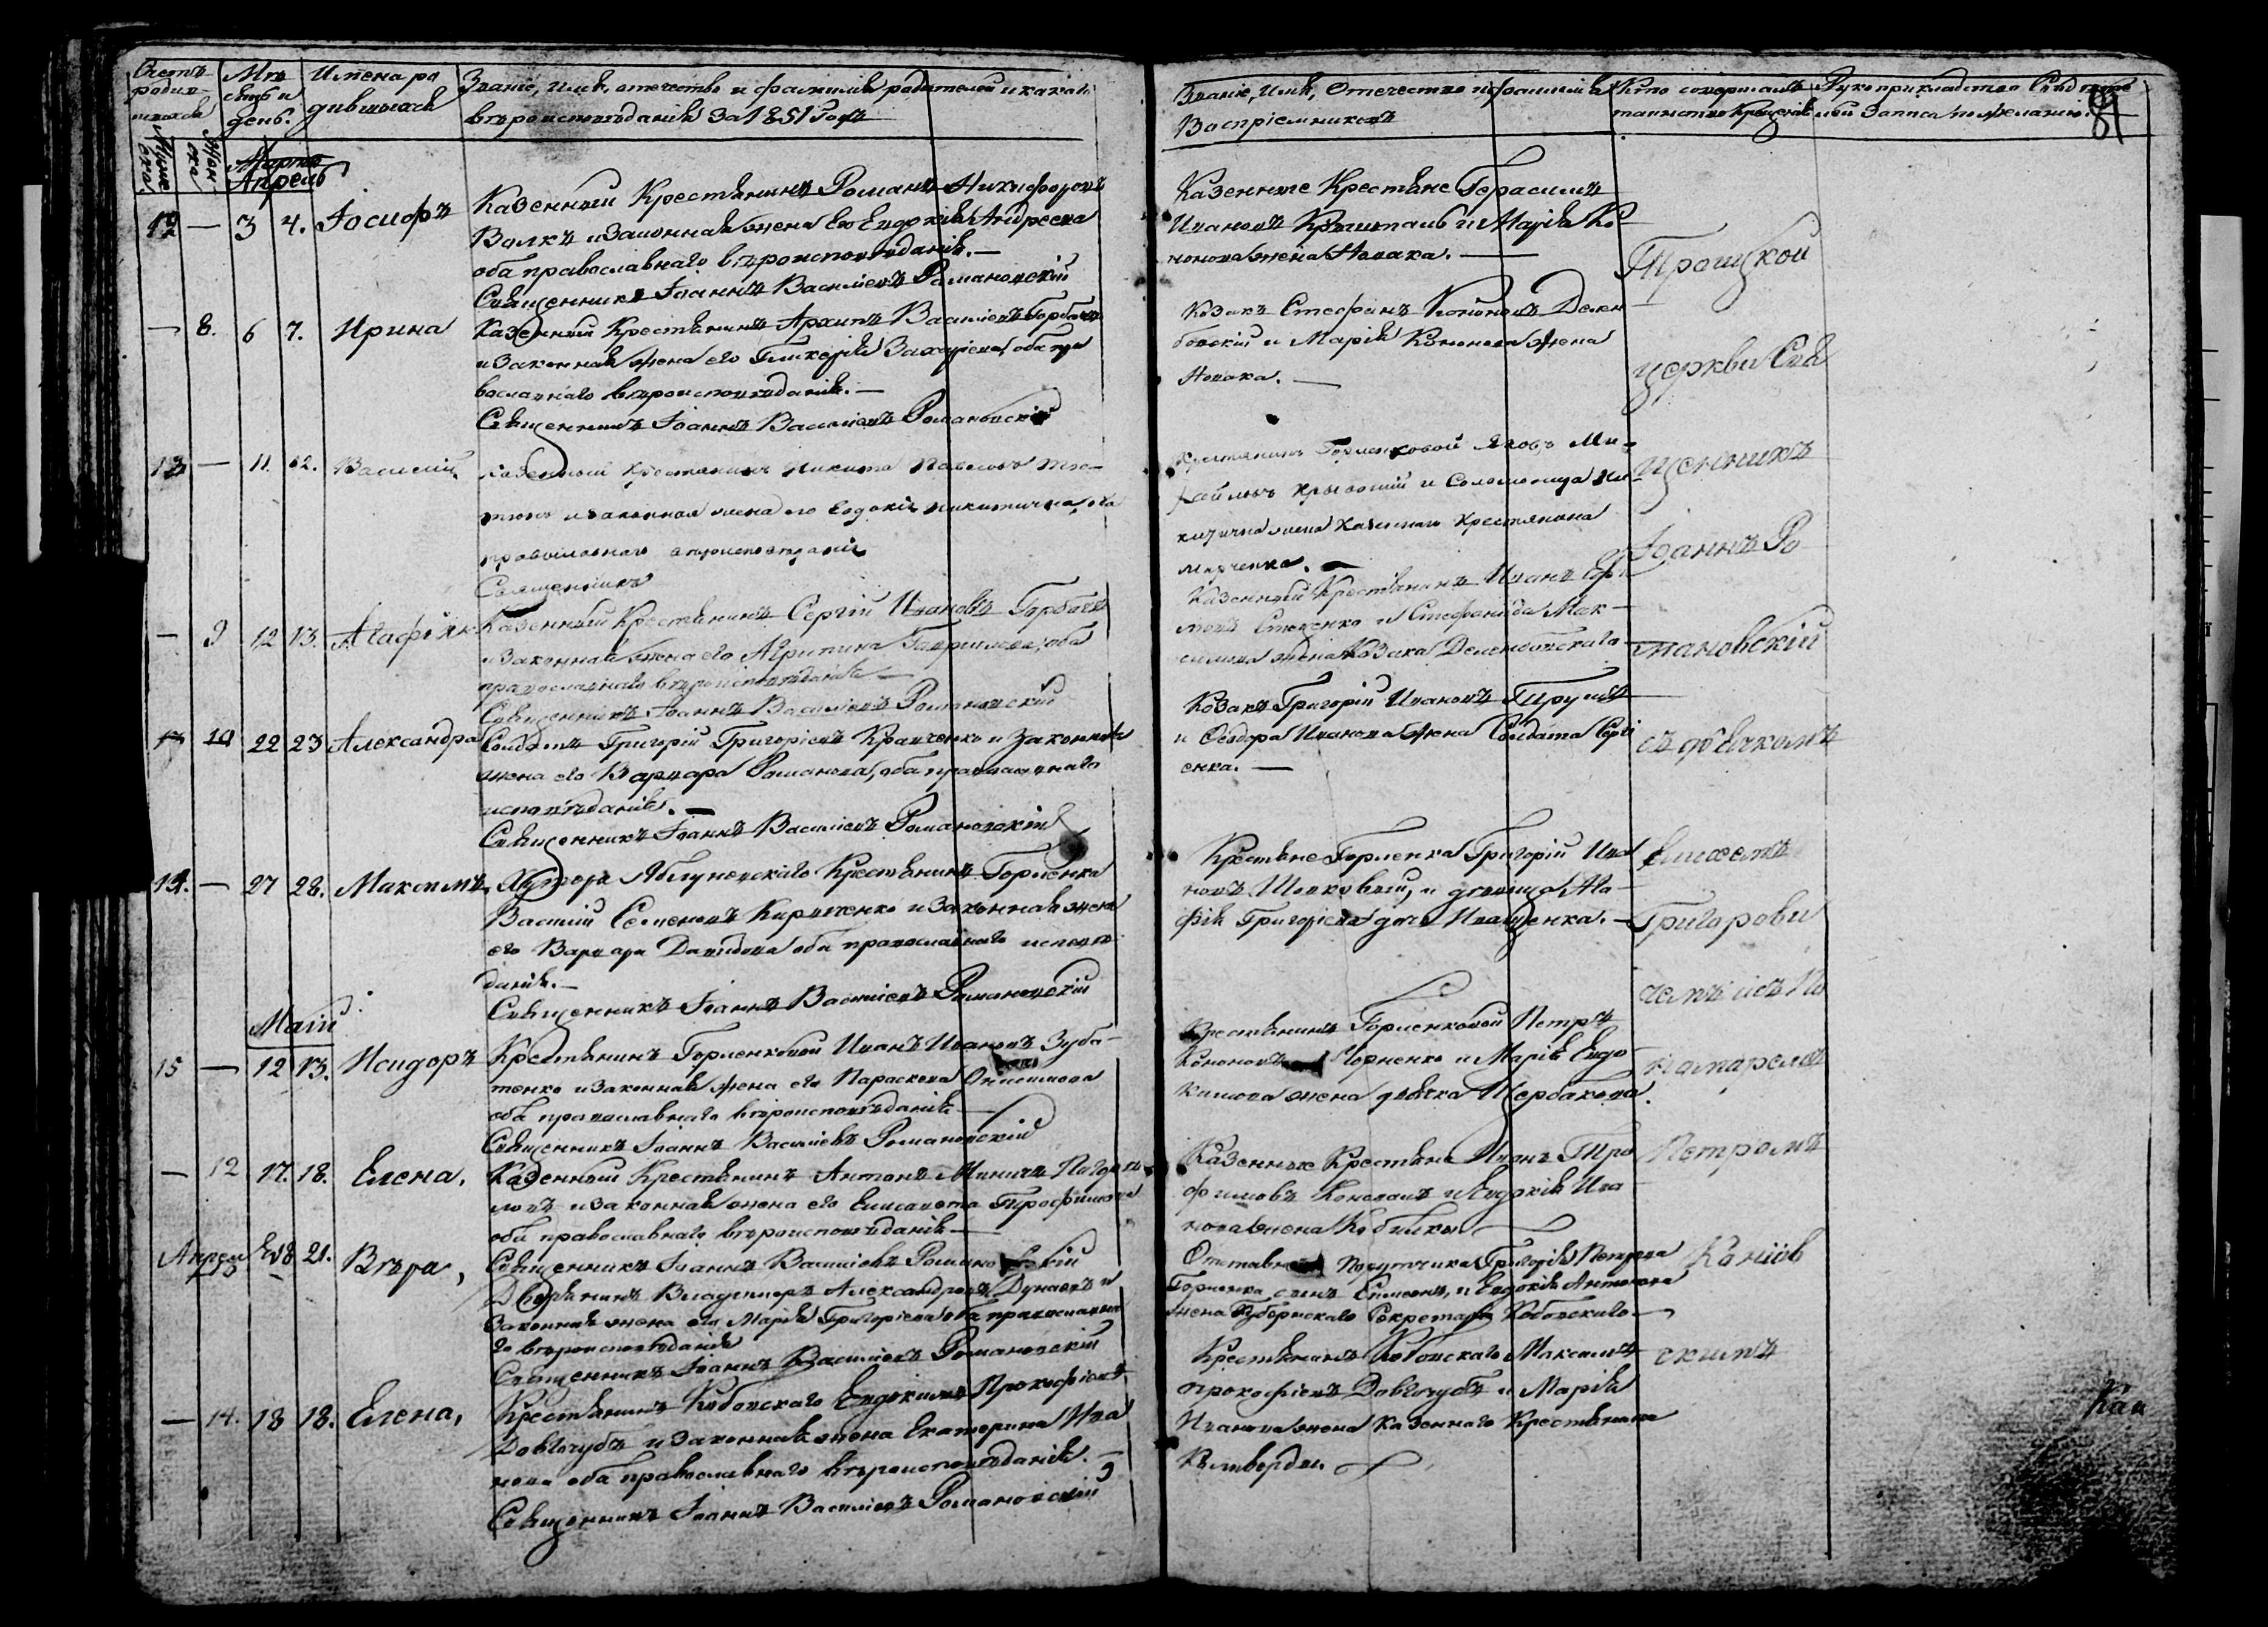 Счетъ родив-
шихся
Мѣсяць и
день.
Имена ро
дившихся
Званіе, Имя, отечество и фамилія родителей и какого
вѣроисповѣданія За 1851 Годъ
Муже
ска
Жен
ска
Мартъ
Апрель
12 — 3 4. Іосифъ
Казенный Крестянинъ Романъ Никифоровъ
Волкъ и Законная жена Его Евдокія Андреева
оба православнаго вѣроисповѣданія. —
Священникъ Іоаннъ Василіевъ Романовскій
— 8. 6 7. Ирина
Казенный Крестянинъ Архипъ Василіевъ Горбачъ
и Законная жена его Гликерія Захаріева, оба пра
вославнаго вѣроисповѣданія. —
Священникъ Іоаннъ Василіевъ Романовскій
13 — 11. 12. Василій,
казенный крестянинъ Никита Павловъ
и законная жена его Евдокія Никитична, оба
православнаго вѣроисповѣданія
Священникъ
— 9 12 13. Агафія
Казенный Крестянинъ Сергій Ивановъ Горбачъ
и Законная жена его Агрипина Гаврилова, оба
православнаго вѣроисповѣданія —
Священникъ Іоаннъ Василіевъ Романовскій
10 22 23 Александра
Солдатъ Григорій Григоріевъ Кравченко и Законная
жена его Варвара Романова, оба православнаго
исповѣданія. —
Священникъ Іоаннъ Василіевъ Романовскій
14. — 27 28. Максимъ,
Хутора Яблуновскаго Крестянинъ Горленка
Василій Семеновъ Кириченко и Законная жена
его Варвара Давидова оба православнаго исповѣ
данія. —
Священникъ Іоаннъ Василіевъ Романовскій
Маій
15 — 12 13. Исидоръ
Крестянинъ Горленковой Иванъ Ивановъ Зуба-
тенко и Законная жена его Параскева Онисимова
оба православнаго вѣроисповѣданія —
Священникъ Іоаннъ Василіевъ Романовскій
— 12 17. 18. Елена,
Казенный Крестянинъ Антонъ Миничъ
и Законная жена его Елисавета Трофимова
оба православнаго вѣроисповѣданія —
Священникъ Іоаннъ Василіевъ Романовскій
Апреля 13 18 21. Вѣра,
Дворянинъ Владимиръ Александровъ Дунаевъ и
Законная жена его Марія Григоріева оба православна
го вѣроисповѣданія
Священникъ Іоаннъ Василіевъ Романовскій
— 14. 18 18. Елена,
Крестянинъ Кобовскаго Евдокимъ Прокофіевъ
Довгочубъ и Законная жена Екатерина Ива
нова оба православнаго вѣроисповѣданія. —
Священникъ Іоаннъ Василіевъ Романовскій
Званіе, Имя, Отечество и фамилія
Воспріемниковъ
Кто совершалъ
таинство Крещенія
Рукоприкладство Свѣдѣте
лей Записи по желанію.
Казенные Крестяне Герасимъ
Ивановъ Кришталь и Марія Ко-
нонова жена Новака. —
Козакъ Стефанъ Кононовъ Делен
бовскій и Марія Кононова жена
Новака. —
Крестянинъ Горленковой Яковъ Ми-
хайловъ и Соломонида
жена Казеннаго Крестянина
Марченка. —
Казенный Крестянинъ Иванъ
Стеценко и Стефанида Мак-
симова жена Козака Деленбовскаго
Козакъ Григорій Ивановъ
и Феодора Иванова жена Солдата Серге
енка. —
Крестяне Горленка Григорій Ива
новъ Шовковый, и девица Ага
фія Григоріева дочь Иващенка. —
Крестянинъ Горленковой Петръ
Кононовъ Чорненко и Марія Евдо
кимова жена дьячка Щербакова.
Казенные Крестяне Иванъ Тро
фимовъ Коновалъ и Евдокія Ива
нова жена Кобилки —
Отставнаго Порутчика Григорія Петрова
Горленка сынъ Симеонъ, и Евдокія Антонова
жена Губернскаго Секретаря Кобовскаго —
Крестянинъ Кобовскаго Максимъ
Прокофіевъ Довгочубъ и Марія
Иванова жена Казеннаго Крестянина
Троицкой
церкви Свя
щенникъ
Іоаннъ Ро
мановскій
съ дьячкомъ
Григорови
чемъ и съ По
намаремъ
Петромъ
Каніов
скимъ